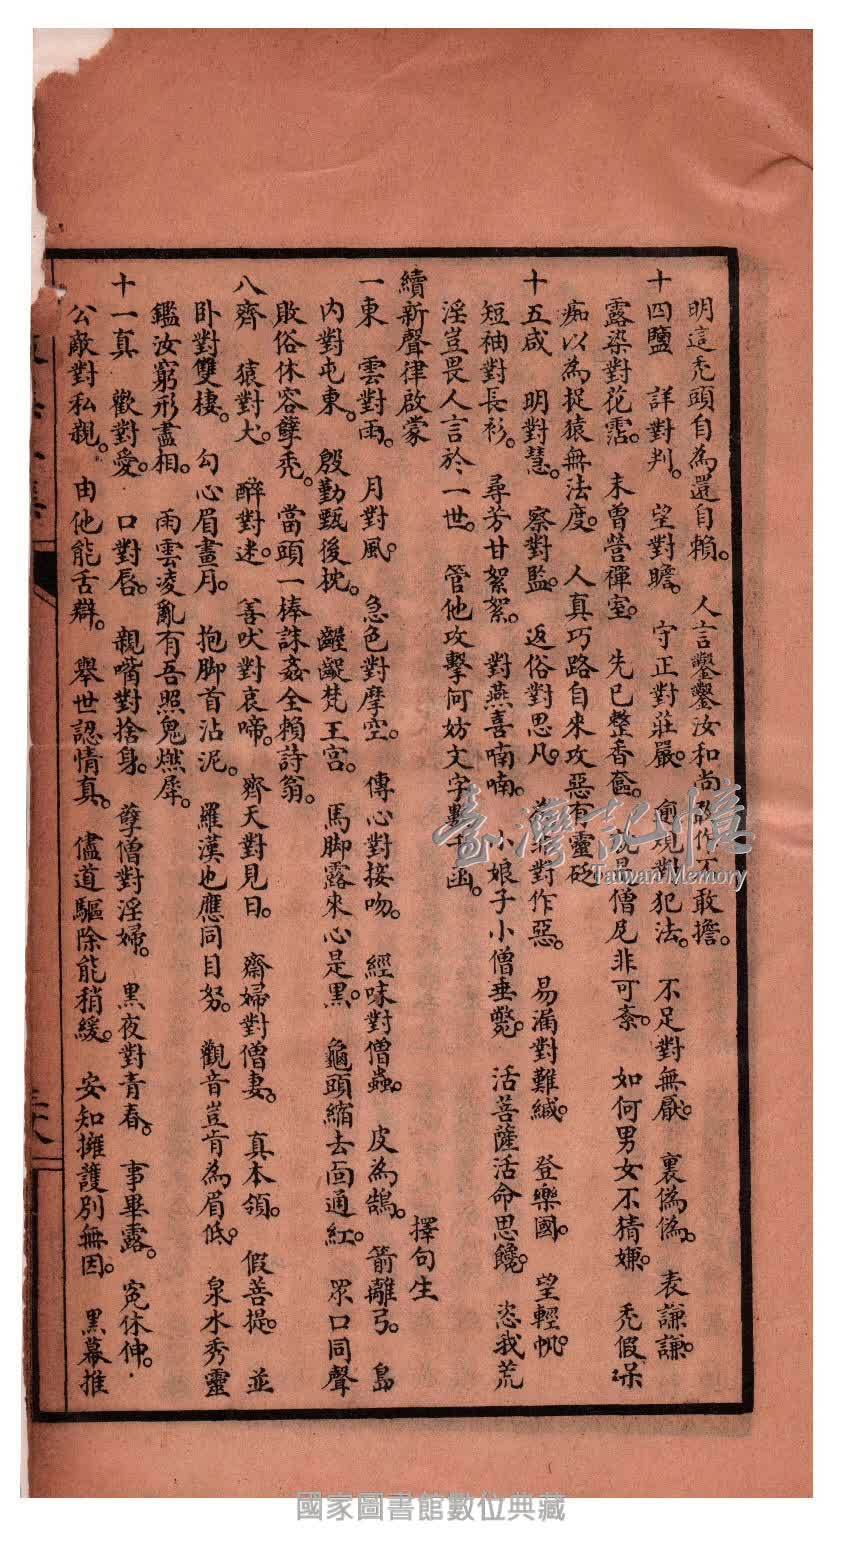 明這禿頭自為還自賴。　人言鑿鑿汝和尚敢作不敢擔。
十四鹽　詳對判。　望對瞻。　守正對莊嚴。　逾規對犯法。　不足對無厭。　裏偽偽。　表謙謙。
露染對花霑。　未曾營禪室。　先已整香奩。　說是僧尼非可紊。　如何男女不猜嫌。　禿假呆
痴以為捉猿無法度。　人真巧路自來攻惡有靈砭
十五咸　明對慧。　察對監。　返俗對思凡。　對作惡。　易漏對難緘。　登樂國。　望輕帆。
短袖對長衫。　尋芳甘絮絮。　對燕喜喃喃。　小娘子小僧垂斃。　活菩薩活命思饞。　恣我荒
淫豈畏人言於一世。　管他攻擊何妨文字數千函。
續新聲律啟蒙　擇句生
一東　雲對雨。　月對風。　急色對摩空。　傳心對接吻。　經味對僧蟲。　皮為鵠。　箭離弓。　島
內對屯東。　殷勤甄後枕。　齷齪梵王宮。　馬脚露來心是黑。　龜頭縮去面通紅。　眾口同聲
敗俗休容孽禿。　當頭一棒誅姦全賴詩翁。
八齊　猿對犬。　醉對迷。　善吠對哀啼。　齊天對見日。　齋婦對僧妻。　真本領。　假菩提。　並
卧對雙棲。　勾心眉畫月。　抱脚首沾泥。　羅漢也應同目努。　觀音豈肯為眉低。　泉水秀靈
鑑汝窮形盡相。　雨雲凌亂有吾照鬼燃犀。
十一真　歡對愛。　口對唇。　親嘴對捨身。　孽僧對淫婦。　黑夜對青春。　事畢露。　寃休伸。
公敵對私親。　由他能舌辯。　舉世認情真。　儘道驅除能稍緩。　安知擁護別無因。　黑幕推
臺灣記憶
Taiwan Memory
國家圖書館數位典藏